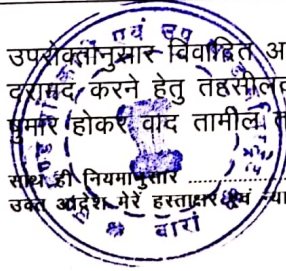 उपरोक्तानुसार विवादित अ
दरामद करने हेतु तहसील
षुमार होकर वाद तामील
साथ ही नियमानुसार ..........
उक्त आदेश मेरें हस्ताक्षर एवं
बारां